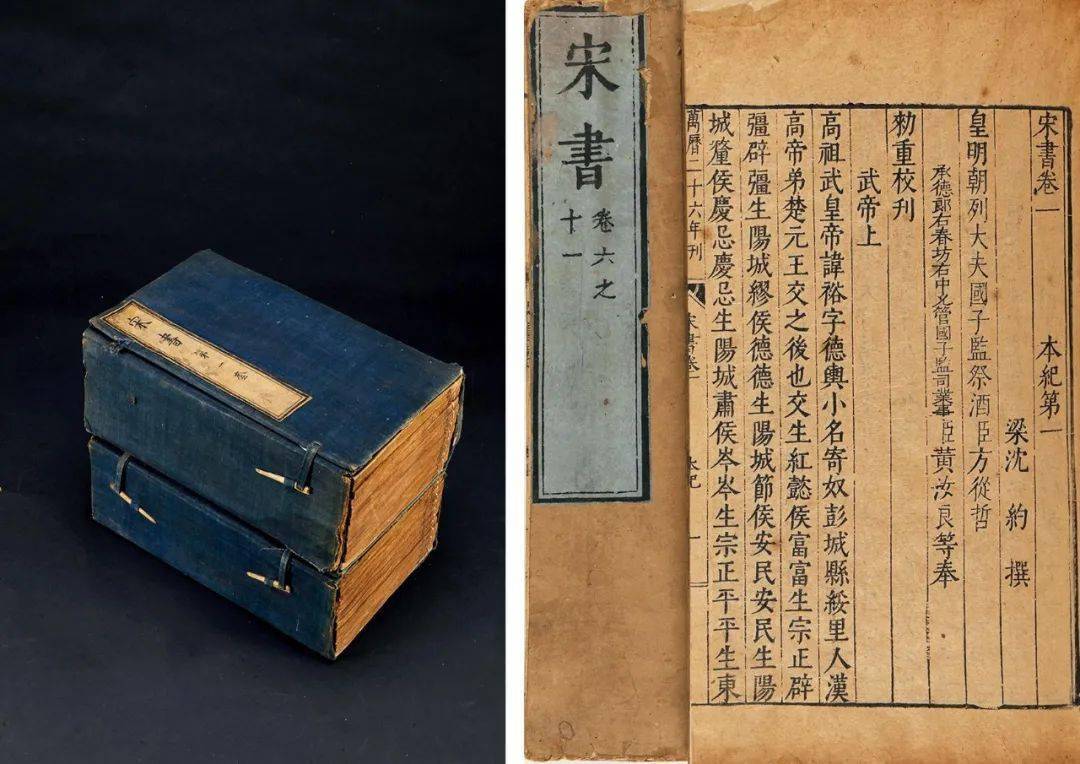 宋書 第一套
宋書
卷六之
十一
宋書卷一 本紀第一
梁沈約撰
皇明朝列大夫國子監祭酒臣方從哲
承德郎右春坊右中允管國子監司業事臣黃汝良等奉
勑重校刊
武帝上
高祖武皇帝諱裕字德輿小名寄奴彭城縣綏里人漢
高帝弟楚元王交之後也交生紅懿侯富富生宗正辟
彊辟彊生陽城繆侯德德生陽城節侯安民安民生陽
城釐侯慶忌慶忌生陽城肅侯岑岑生宗正平平生東
萬曆二十六年刊
宋書卷一
本紀
一